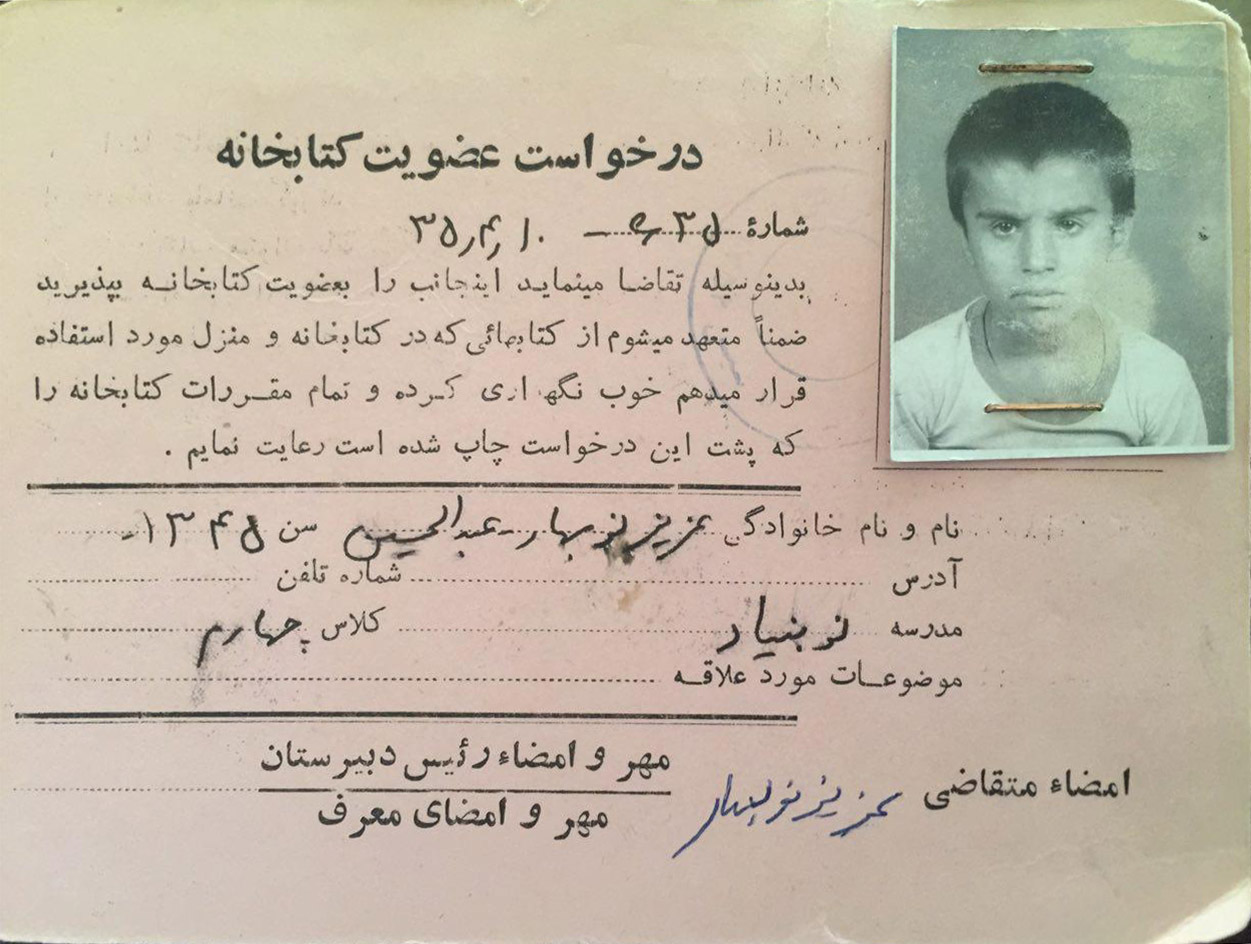 درخواست عضویت کتابخانه
شمارهٔ ۳۵ – ۱۰ ر۴ر۳۵
بدینوسیله تقاضا مینماید اینجانب را بعضویت کتابخانه بپذیرید
ضمناً متعهد میشوم از کتابهائی که در کتابخانه و منزل مورد استفاده
قرار میدهم خوب نگهداری کرده و تمام مقررات کتابخانه را
که پشت این درخواست چاپ شده است رعایت نمایم .
نام و نام خانوادگی عزیز نوبهار - عبدالحسین سن ۱۳۴۵
آدرس شماره تلفن
مدرسه نوبنیاد کلاس چهارم
موضوعات مورد علاقه
مهر و امضاء رئیس دبیرستان
امضاء متقاضی عزیز نوبهار
مهر و امضای معرف